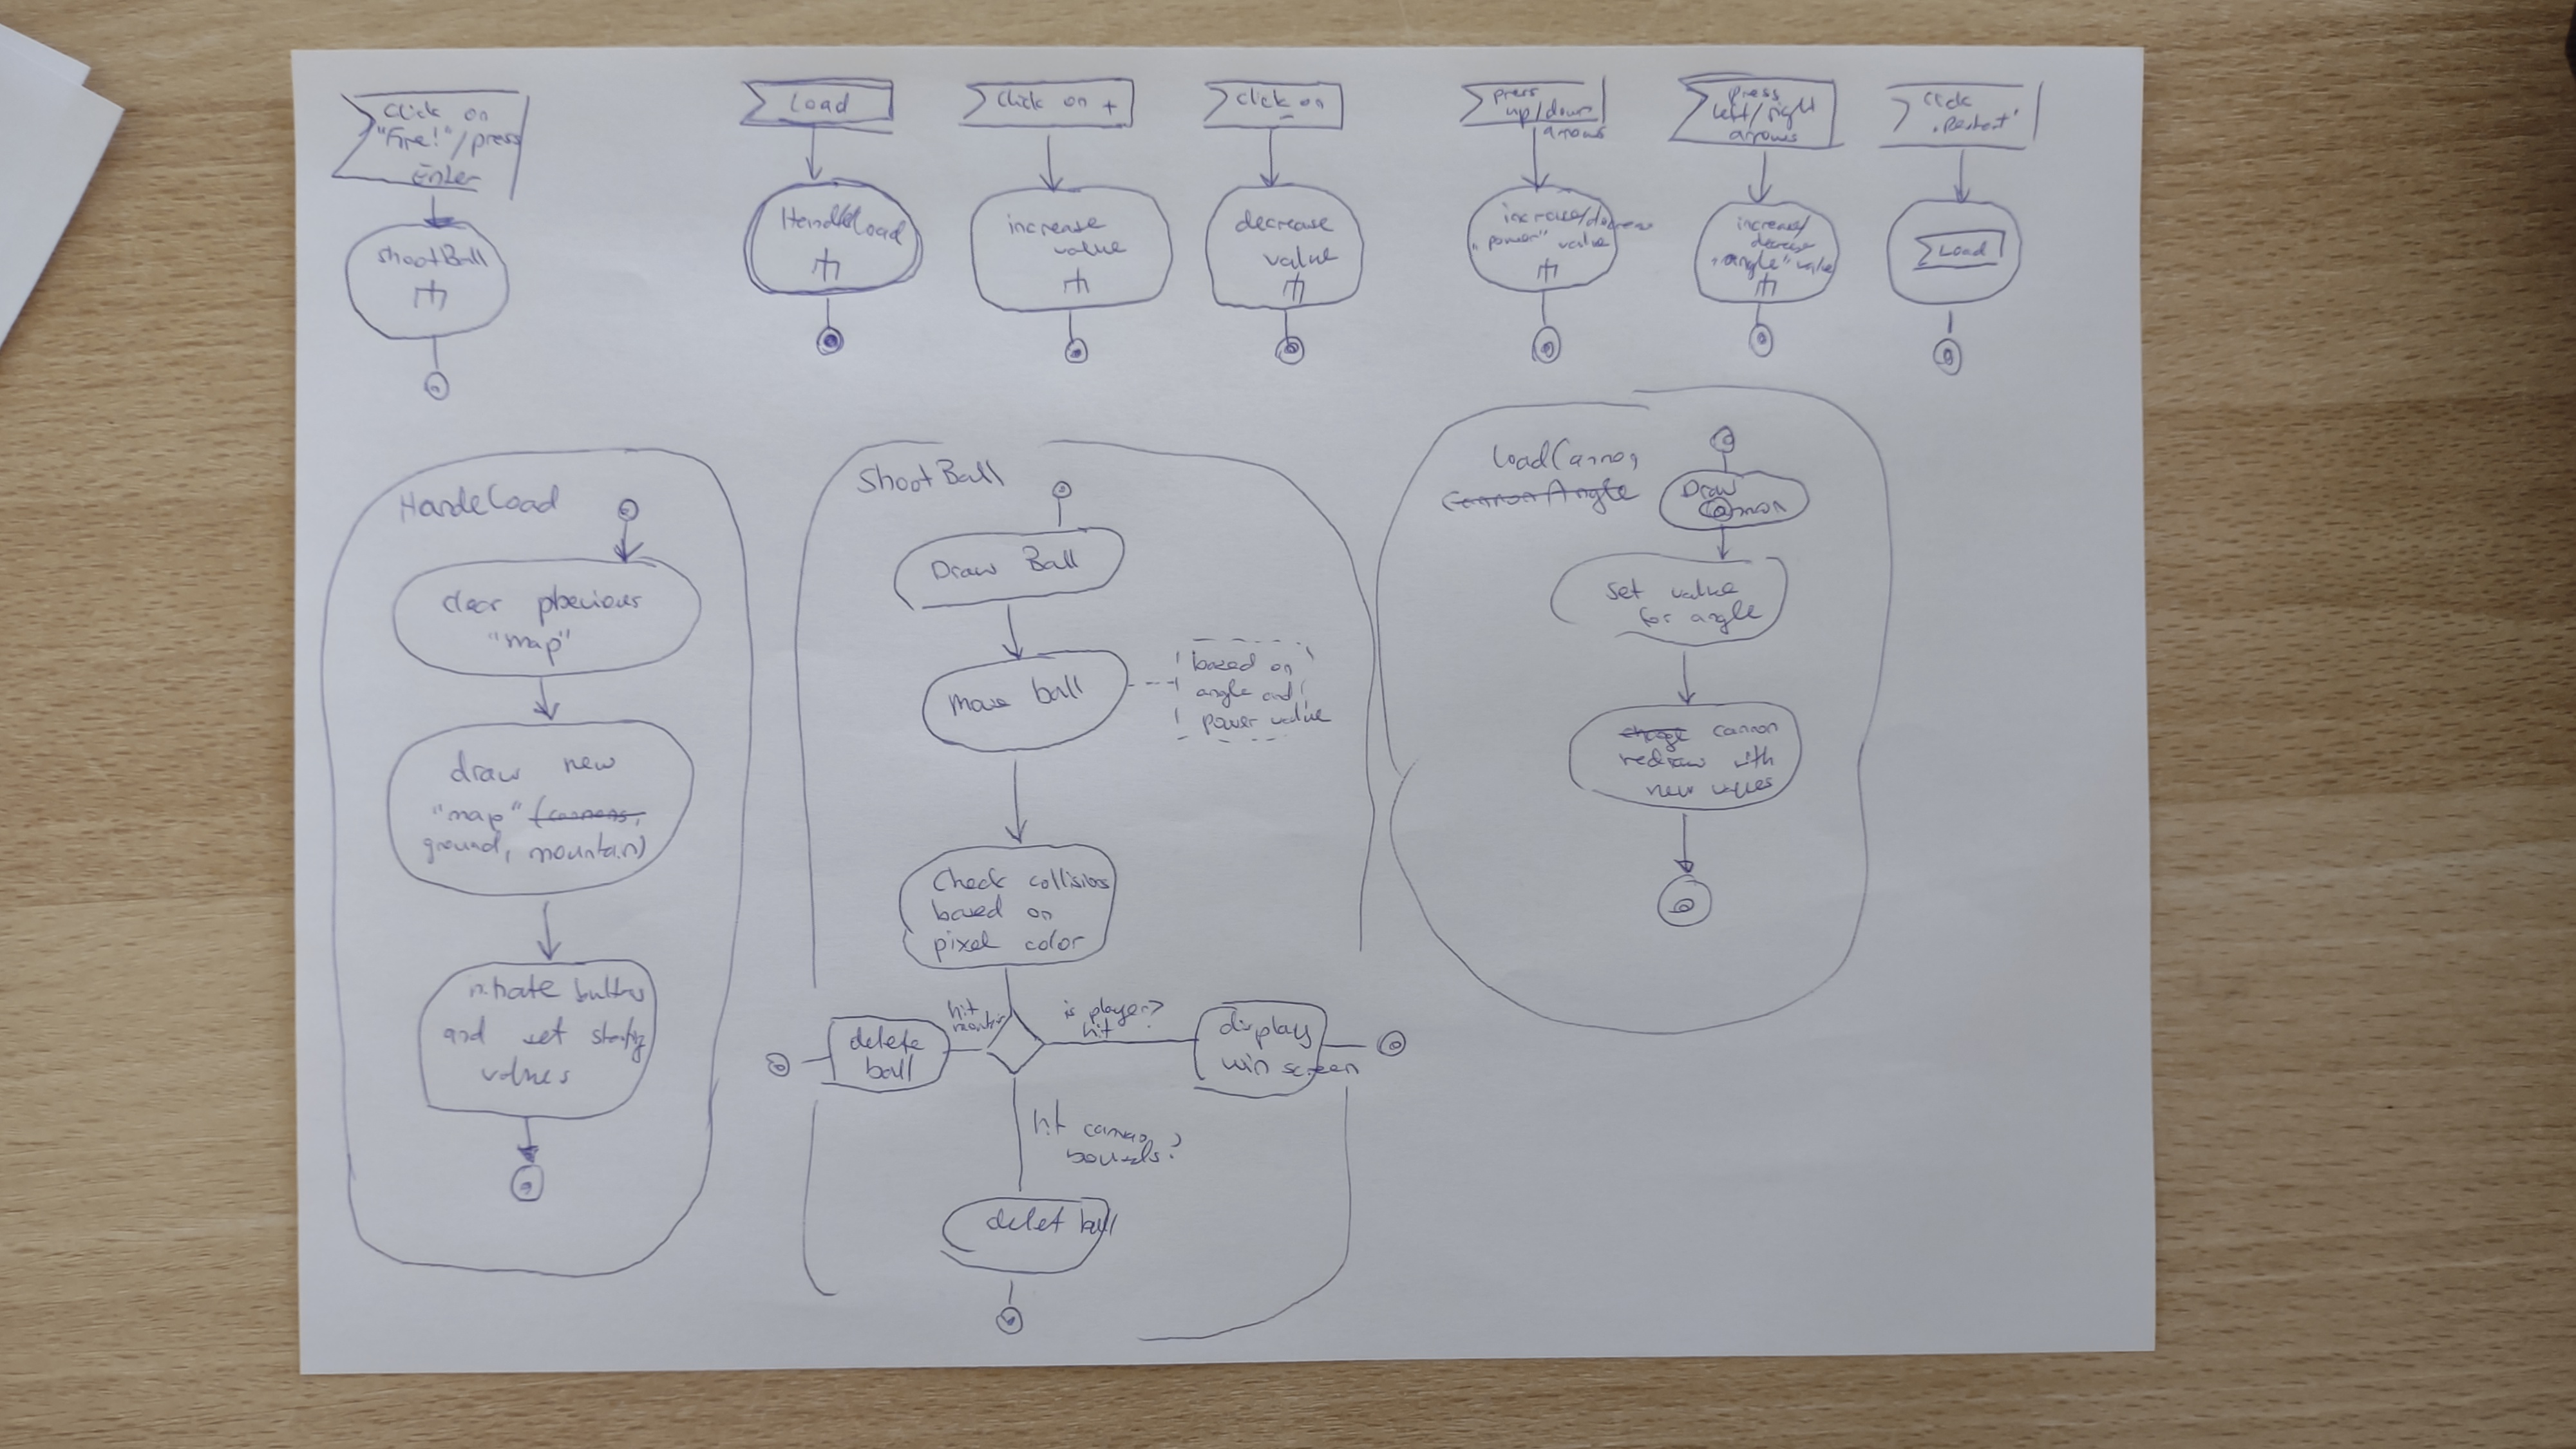 Click on
"Fire!"/press
Enter
shootBall
Load
HandleLoad
Click on +
increase
value
click on
-
decrease
value
press
up/down
arrows
increase/decrease
"power" value
press
left/right
arrows
increase/
decrease
"angle" value
click
"Restart"
Load
HandeLoad
clear
"map"
draw new
"map" (cannons,
ground, mountain)
and set
values
ShootBall
Draw Ball
Move ball
based on
angle and
power value
Check collisions
based on
pixel color
hit
delete
ball
is player?
hit
display
win screen
hit
bounds?
delet ball
CannonAngle
Draw
Cannon
set value
for angle
change cannon
redraw with
new values